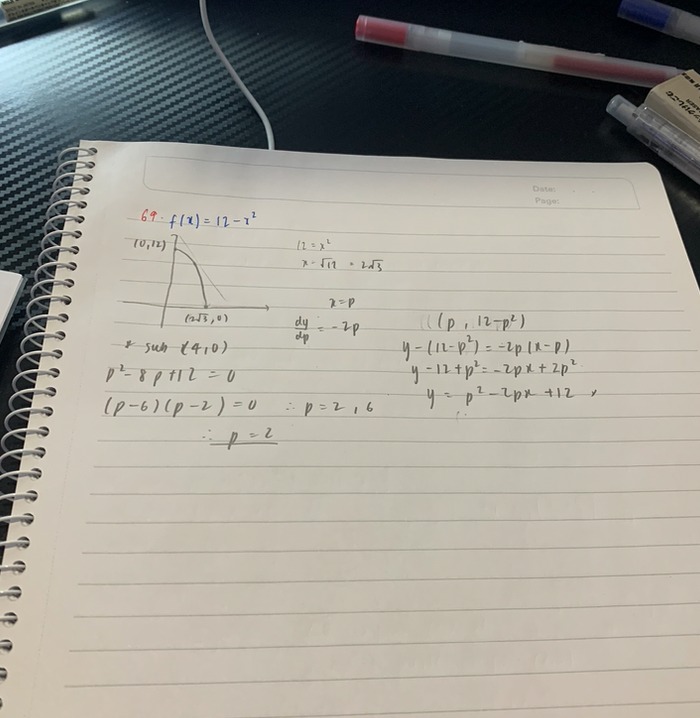 Date:
Page:
69. f(x) = 12 - x²
(0,12)
12 = x²
x = √12 = 2√3
(2√3, 0)
x = p
dy/dp = -2p
(p, 12-p²)
y - (12-p²) = -2p(x-p)
y - 12 + p² = -2px + 2p²
y = p² - 2px + 12
* sub (4,0)
p² - 8p + 12 = 0
(p-6)(p-2) = 0 ∴ p = 2, 6
∴ p = 2